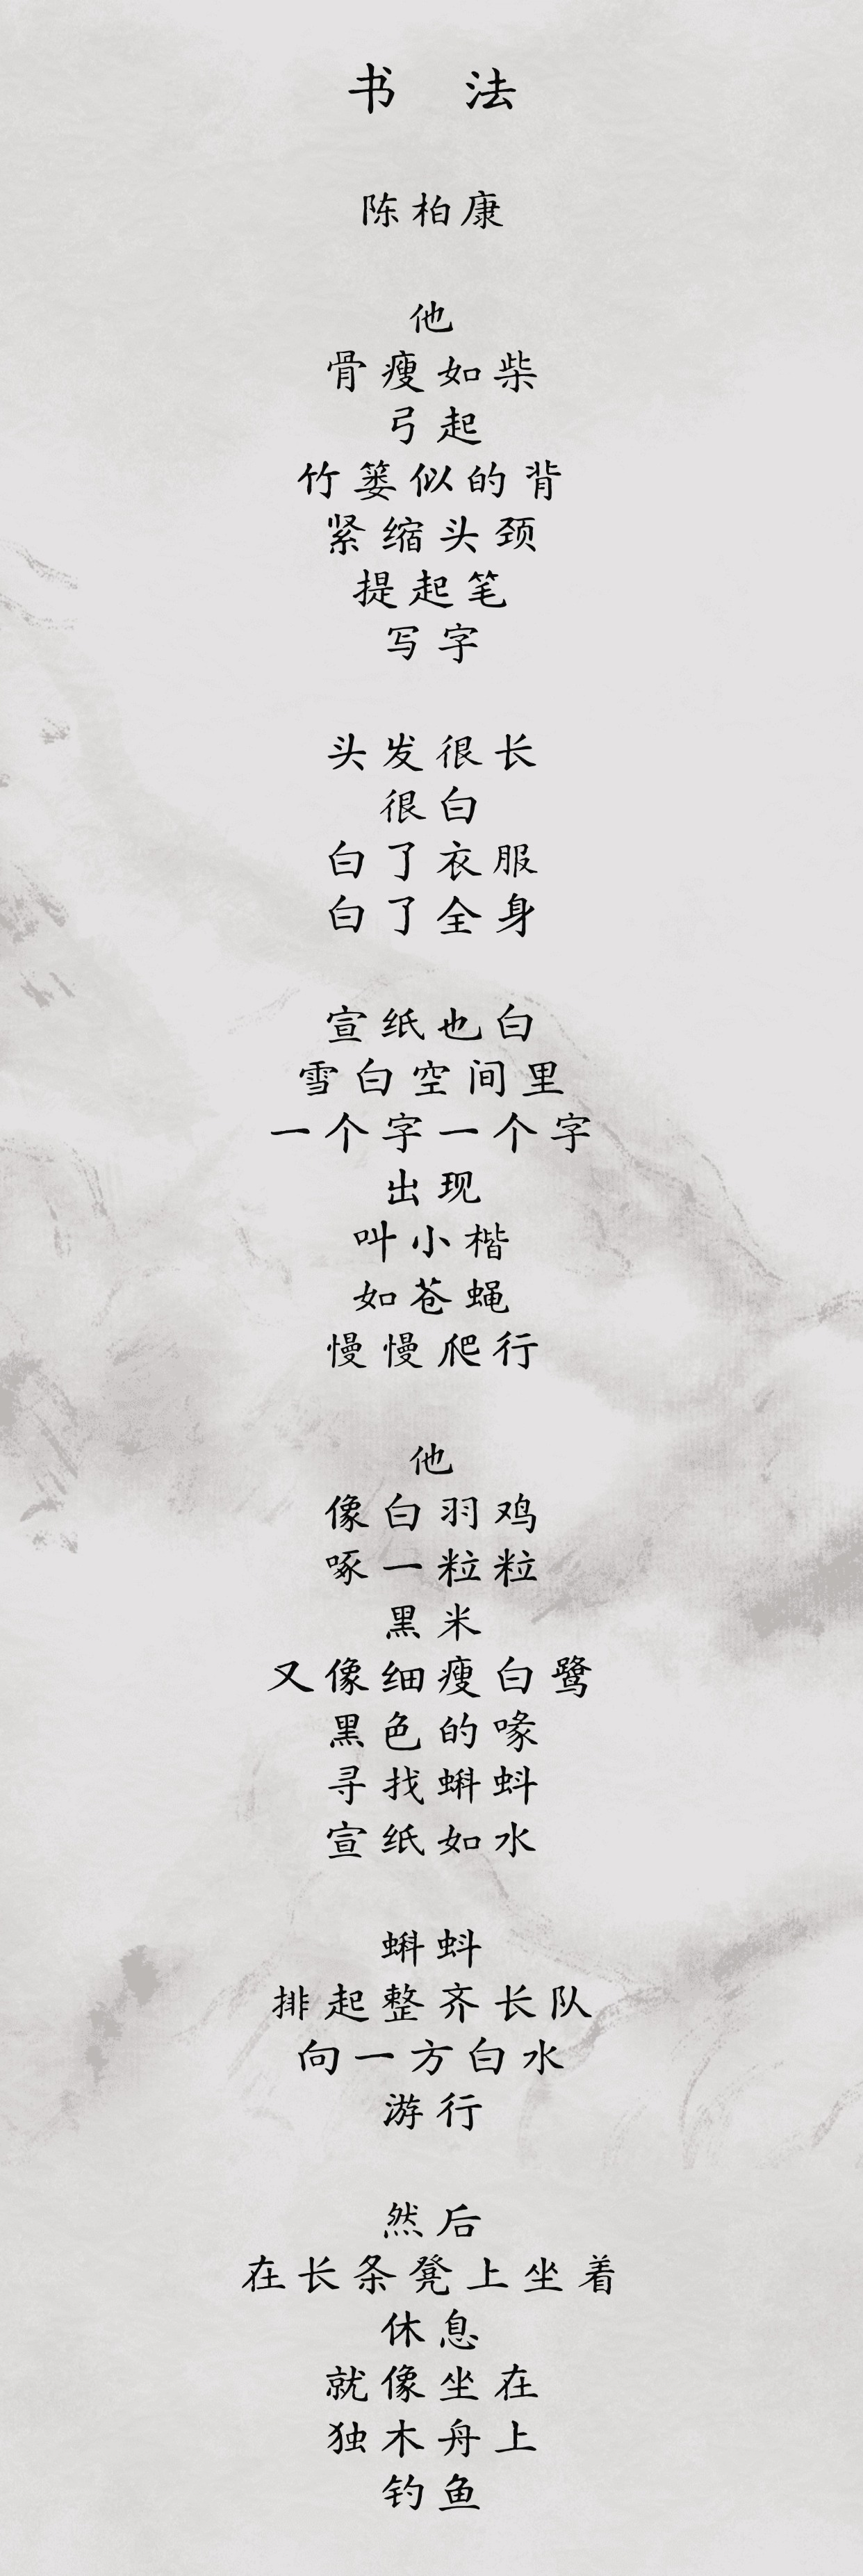 书 法
陈柏康
他
骨瘦如柴
弓起
竹篓似的背
紧缩头颈
提起笔
写字
头发很长
很白
白了衣服
白了全身
宣纸也白
雪白空间里
一个字一个字
出现
叫小楷
如苍蝇
慢慢爬行
他
像白羽鸡
啄一粒粒
黑米
又像细瘦白鹭
黑色的喙
寻找蝌蚪
宣纸如水
蝌蚪
排起整齐长队
向一方白水
游行
然后
在长条凳上坐着
休息
就像坐在
独木舟上
钓鱼